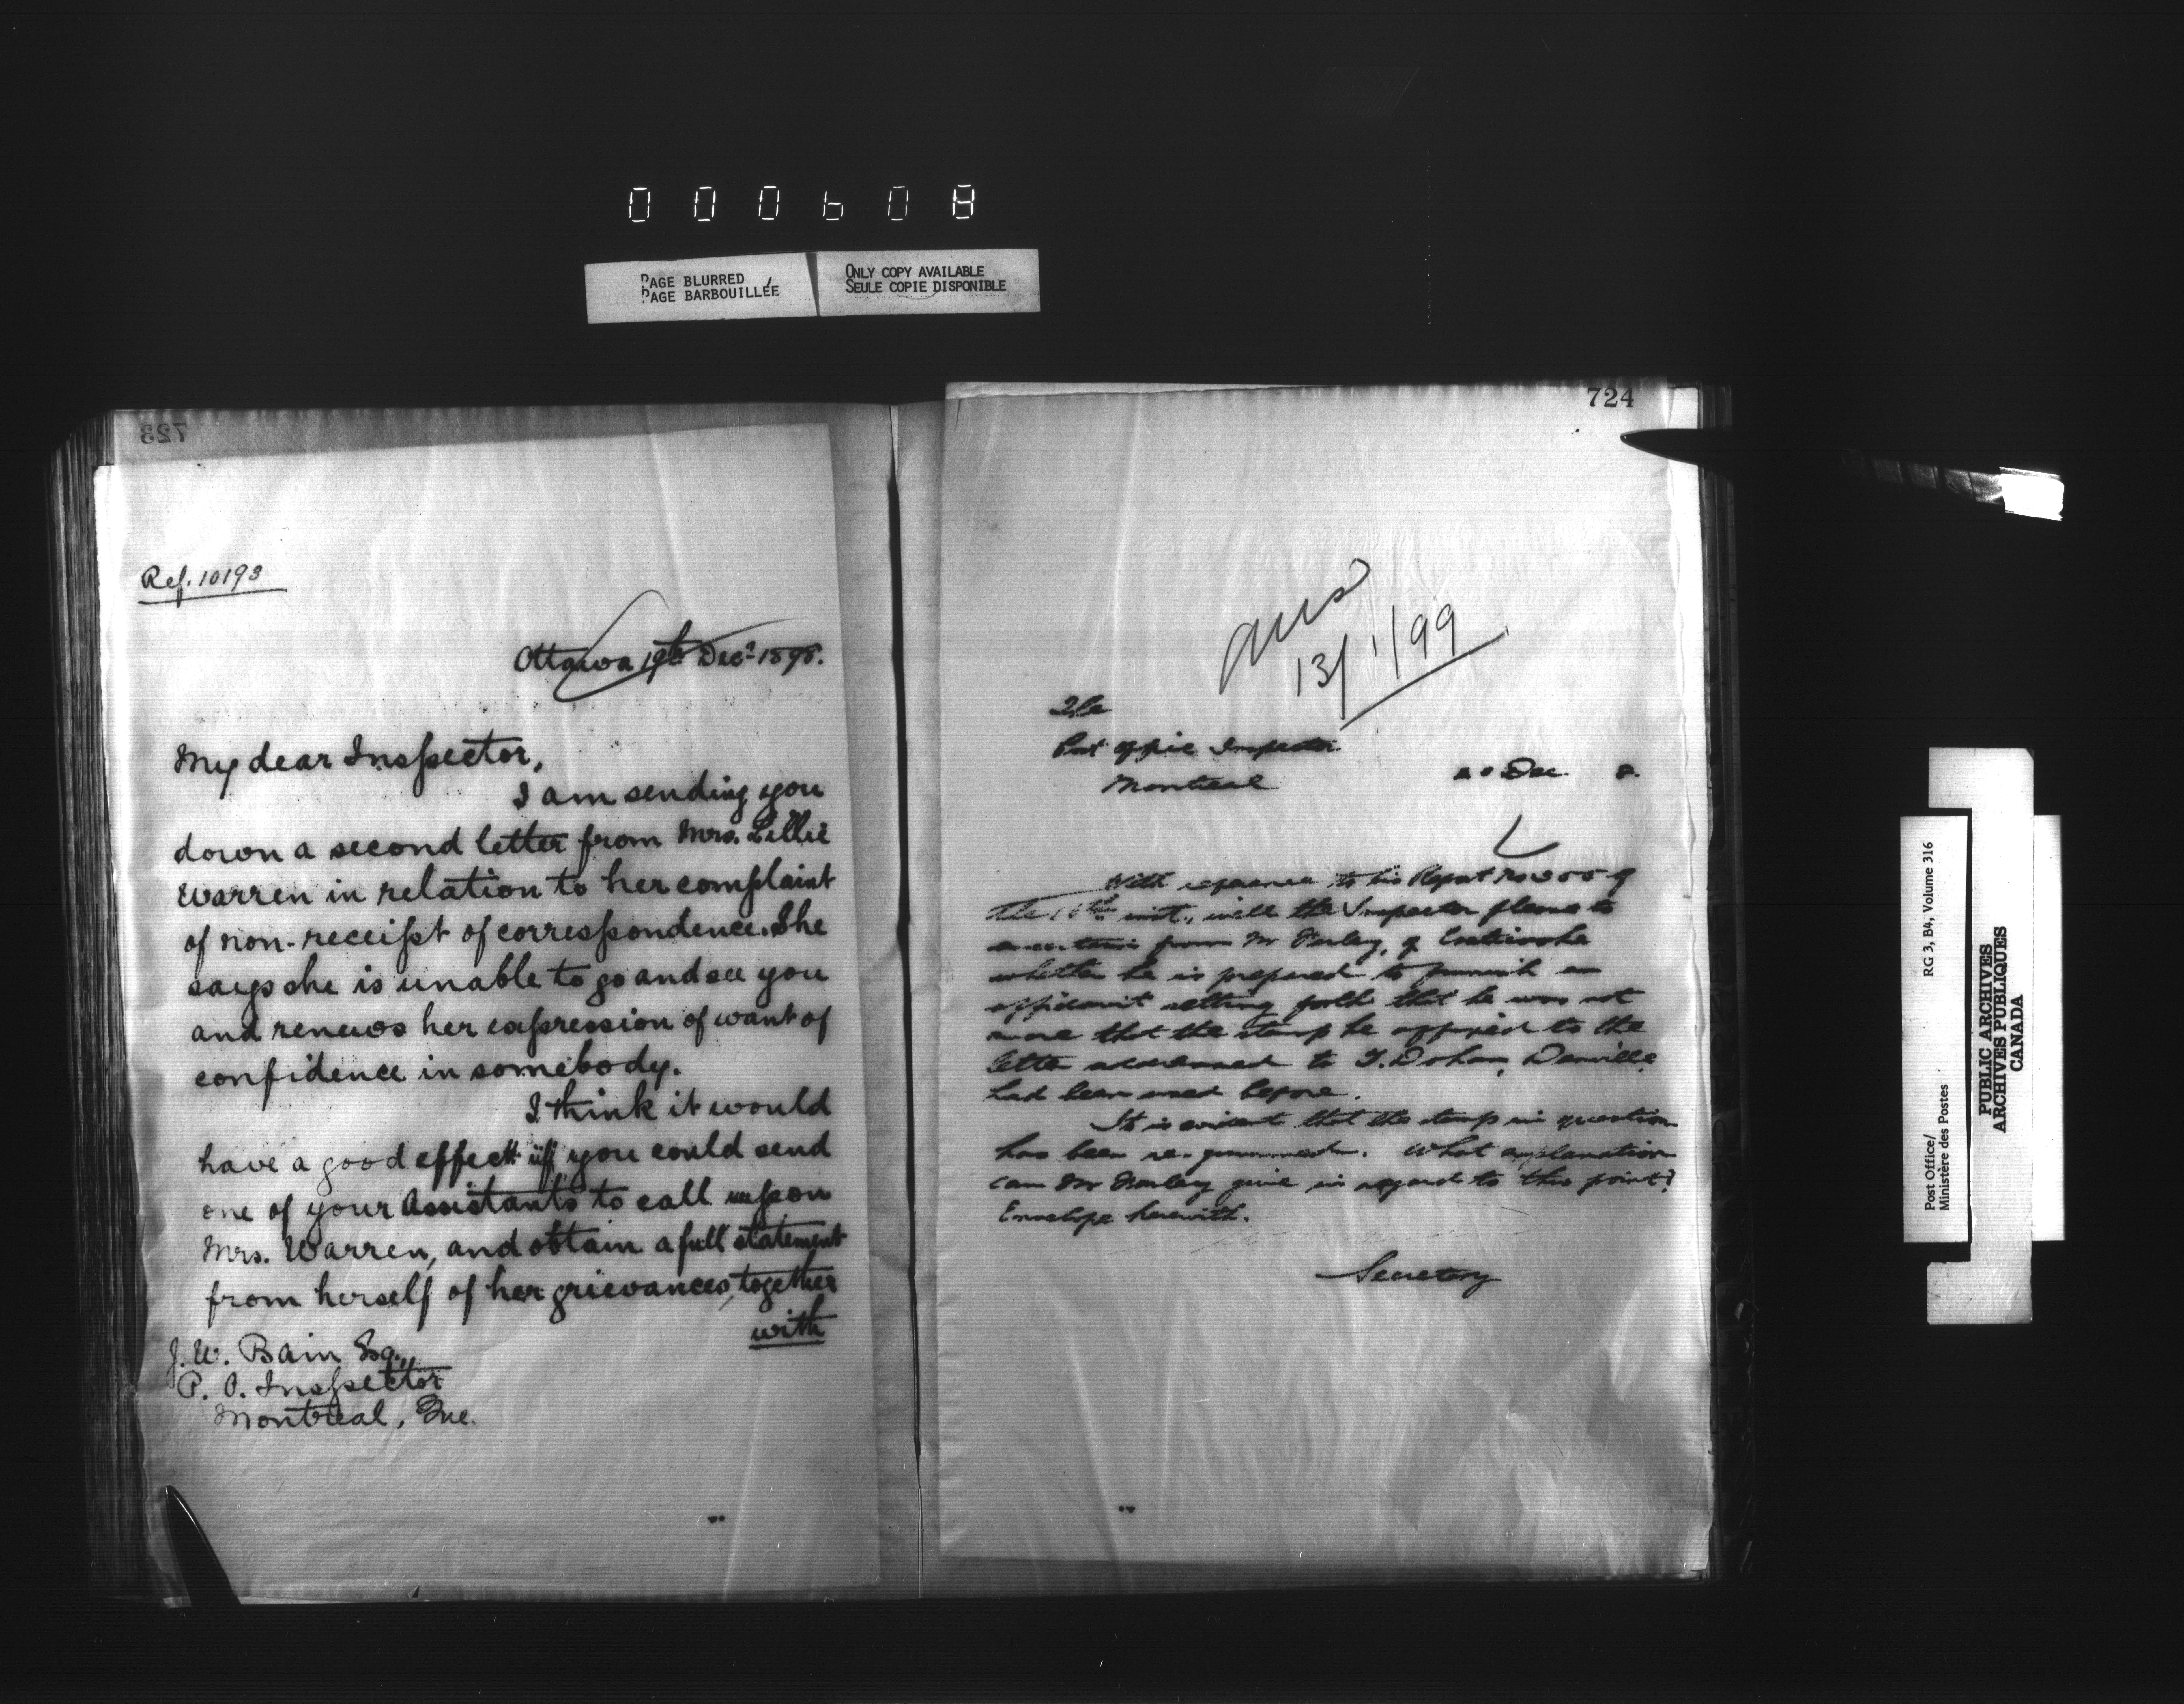 000608
PAGE BLURRED
PAGE BARBOUILLÉE
ONLY COPY AVAILABLE
SEULE COPIE DISPONIBLE
723
Ref. 10193
Ottawa 19th Dec. 1898.
My dear Inspector,
I am sending you
down a second letter from Mrs. Lillie
Warren in relation to her complaint
of non-receipt of correspondence. She
says she is unable to go and see you
and renews her expression of want of
confidence in somebody.
I think it would
have a good effect if you could send
one of your Assistants to call upon
Mrs. Warren, and obtain a full statement
from herself of her grievances, together
with
J. W. Bain Esq.,
P. O. Inspector
Montreal, Que.
724
Ans
13/1/99
The
Post Office Inspector
Montreal
20 Dec 8.
With reference to his Report No of
the inst., will the Inspector please to
ascertain from Mr Farley, of
whether he is prepared to furnish an
affidavit setting forth that he was not
aware that the stamp he affixed to the
letter addressed to T. Dohan, Danville,
had been used before.
It is evident that the stamp in question
has been re-gummed. What explanation
can Mr Farley give in regard to this point?
Envelope herewith.
Secretary
Post Office/
Ministère des Postes
RG 3, B4, Volume 316
PUBLIC ARCHIVES
ARCHIVES PUBLIQUES
CANADA